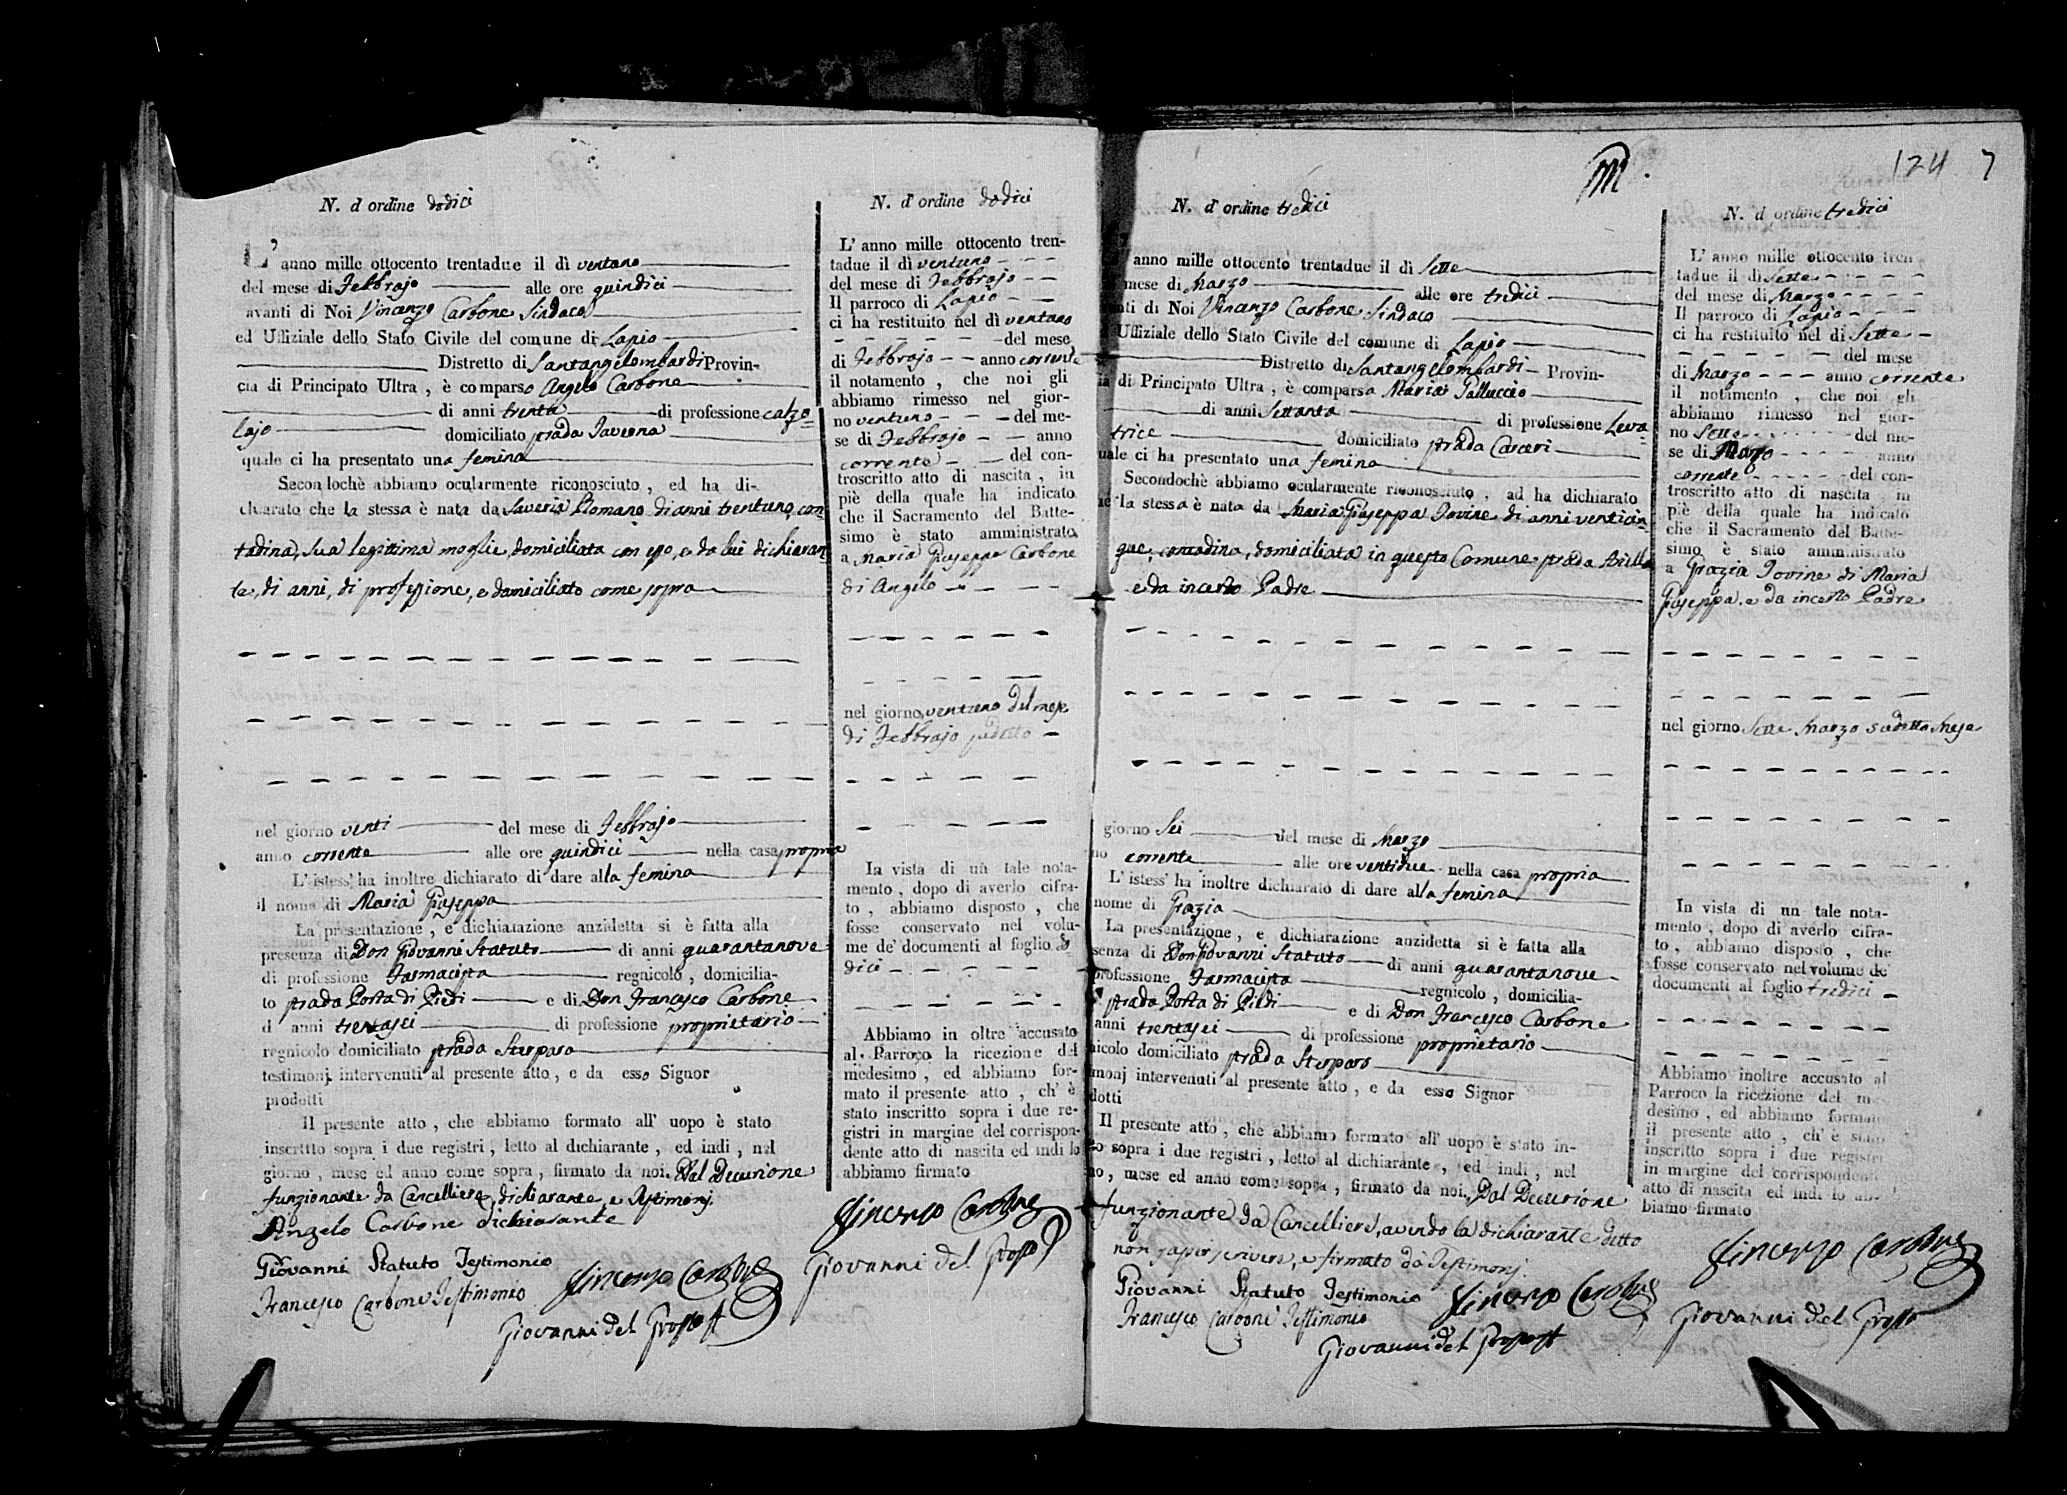 N. d'ordine dodici
L'anno mille ottocento trentadue il dì ventuno
del mese di Febbrajo alle ore quindici
avanti di Noi Vincenzo Carbone Sindaco
ed Uffiziale dello Stato Civile del comune di Lapio
Distretto di Santangelombardi Provin-
cia di Principato Ultra, è comparso Angelo Carbone
di anni trenta di professione calzo=
lajo domiciliato strada Taverna
quale ci ha presentato una femina
Secondochè abbiamo ocularmente riconosciuto, ed ha di-
chiarato che la stessa è nata da Saveria Romano di anni trentuno, con
tadina, sua legittima moglie, domiciliata con esso, e da lui dichiaran
te, di anni, di professione, e domiciliato come sopra
nel giorno venti del mese di Febbrajo
anno corrente alle ore quindici nella casa propria
L'istess' ha inoltre dichiarato di dare alla femina
il nome di Maria Giuseppa
La presentazione, e dichiarazione anzidetta si è fatta alla
presenza di Don Giovanni Statuto di anni quarantanove
di professione Farmacista regnicolo, domicilia-
to strada Porta di Piedi e di Don Francesco Carbone
d anni trentasei di professione proprietario
regnicolo domiciliato strada
testimonj intervenuti al presente atto, e da esso Signor
prodotti
Il presente atto, che abbiamo formato all' uopo è stato
inscritto sopra i due registri, letto al dichiarante, ed indi, nel
giorno, mese ed anno come sopra, firmato da noi, Dal Decurione
funzionante da Cancelliere, dichiarante, e Testimonj.
Angelo Carbone dichiarante
Giovanni Statuto Testimonio
Francesco Carbone Testimonio Vincenzo Carbone
Giovanni del Grosso
N. d'ordine dodici
L'anno mille ottocento tren-
tadue il dì ventuno
del mese di Febbrajo
Il parroco di Lapio
ci ha restituito nel dì ventuno
del mese
di Febbrajo anno corrente
il notamento, che noi gli
abbiamo rimesso nel gior-
no ventuno del me-
se di Febbrajo anno
corrente del con-
troscritto atto di nascita, in
piè della quale ha indicato
che il Sacramento del Batte-
simo è stato amministrato
a Maria Giuseppa Carbone
di Angelo
nel giorno ventuno del mese
di Febbrajo sudetto
In vista di un tale nota-
mento, dopo di averlo cifra-
to, abbiamo disposto, che
fosse conservato nel volu-
me de' documenti al foglio do
dici
Abbiamo in oltre accusato
al Parroco la ricezione del
medesimo, ed abbiamo for-
mato il presente atto, ch' è
stato inscritto sopra i due re-
gistri in margine del corrispon-
dente atto di nascita ed indi lo
abbiamo firmato
Vincenzo Carbone
Giovanni del Grosso
124 7
N. d'ordine tredici
anno mille ottocento trentadue il dì Sette
mese di Marzo alle ore tredici
nti di Noi Vincenzo Carbone Sindaco
Uffiziale dello Stato Civile del comune di Lapio
Distretto di Santangelombardi Provin-
ia di Principato Ultra, è comparsa Maria Palluccio
di anni Settanta di professione Leva=
trice domiciliato strada Carceri
uale ci ha presentato una femina
Secondochè abbiamo ocularmente riconosciuto, ad ha dichiarato
he la stessa è nata da Maria Giuseppa Iovine di anni venticin=
que, contadina, domiciliata in questo Comune strada
e da incerto Padre
giorno Sei del mese di Marzo
no corrente alle ore ventidue nella casa propria
L'istess' ha inoltre dichiarato di dare alla femina
nome di Grazia
La presentazione, e dichiarazione anzidetta si è fatta alla
senza di Don Giovanni Statuto di anni quarantanove
professione Farmacista regnicolo, domicilia-
strada Porta di Piedi e di Don Francesco Carbone
anni trentasei di professione proprietario
nicolo domiciliato strada
monj intervenuti al presente atto, e da esso Signor
dotti
Il presente atto, che abbiamo formato all' uopo è stato in-
to sopra i due registri, letto al dichiarante, ed indi, nel
no, mese ed anno come sopra, firmato da noi, Dal Decurione
funzionante da Cancelliere, avendo la dichiarante detto
non saper scrivere, e firmato da Testimonj.
Giovanni Statuto Testimonio Vincenzo Carbone
Francesco Carbone Testimonio
Giovanni del Grosso
N. d'ordine tredici
L'anno mille ottocento tren-
tadue il dì Sette
del mese di Marzo
Il parroco di Lapio
ci ha restituito nel di Sette
del mese
di Marzo anno corrente
il notamento, che noi gli
abbiamo rimesso nel gior-
no Sette del me-
se di Marzo anno
corrente del con-
troscritto atto di nascita in
piè della quale ha indicato
che il Sacramento del Batte-
simo è stato amministrato
a Grazia Iovine di Maria
Giuseppa, e da incerto Padre
nel giorno Sette Marzo sudetto Mese
In vista di un tale nota-
mento, dopo di averlo cifra-
to, abbiamo disposto, che
fosse conservato nel volume de'
documenti al foglio tredici
Abbiamo inoltre accusato al
Parroco la ricezione del me-
desimo, ed abbiamo formato
il presente atto, ch' è stato
inscritto sopra i due registri
in margine del corrispondente
atto di nascita ed indi lo ab-
biamo firmato
Vincenzo Carbone
Giovanni del Grosso